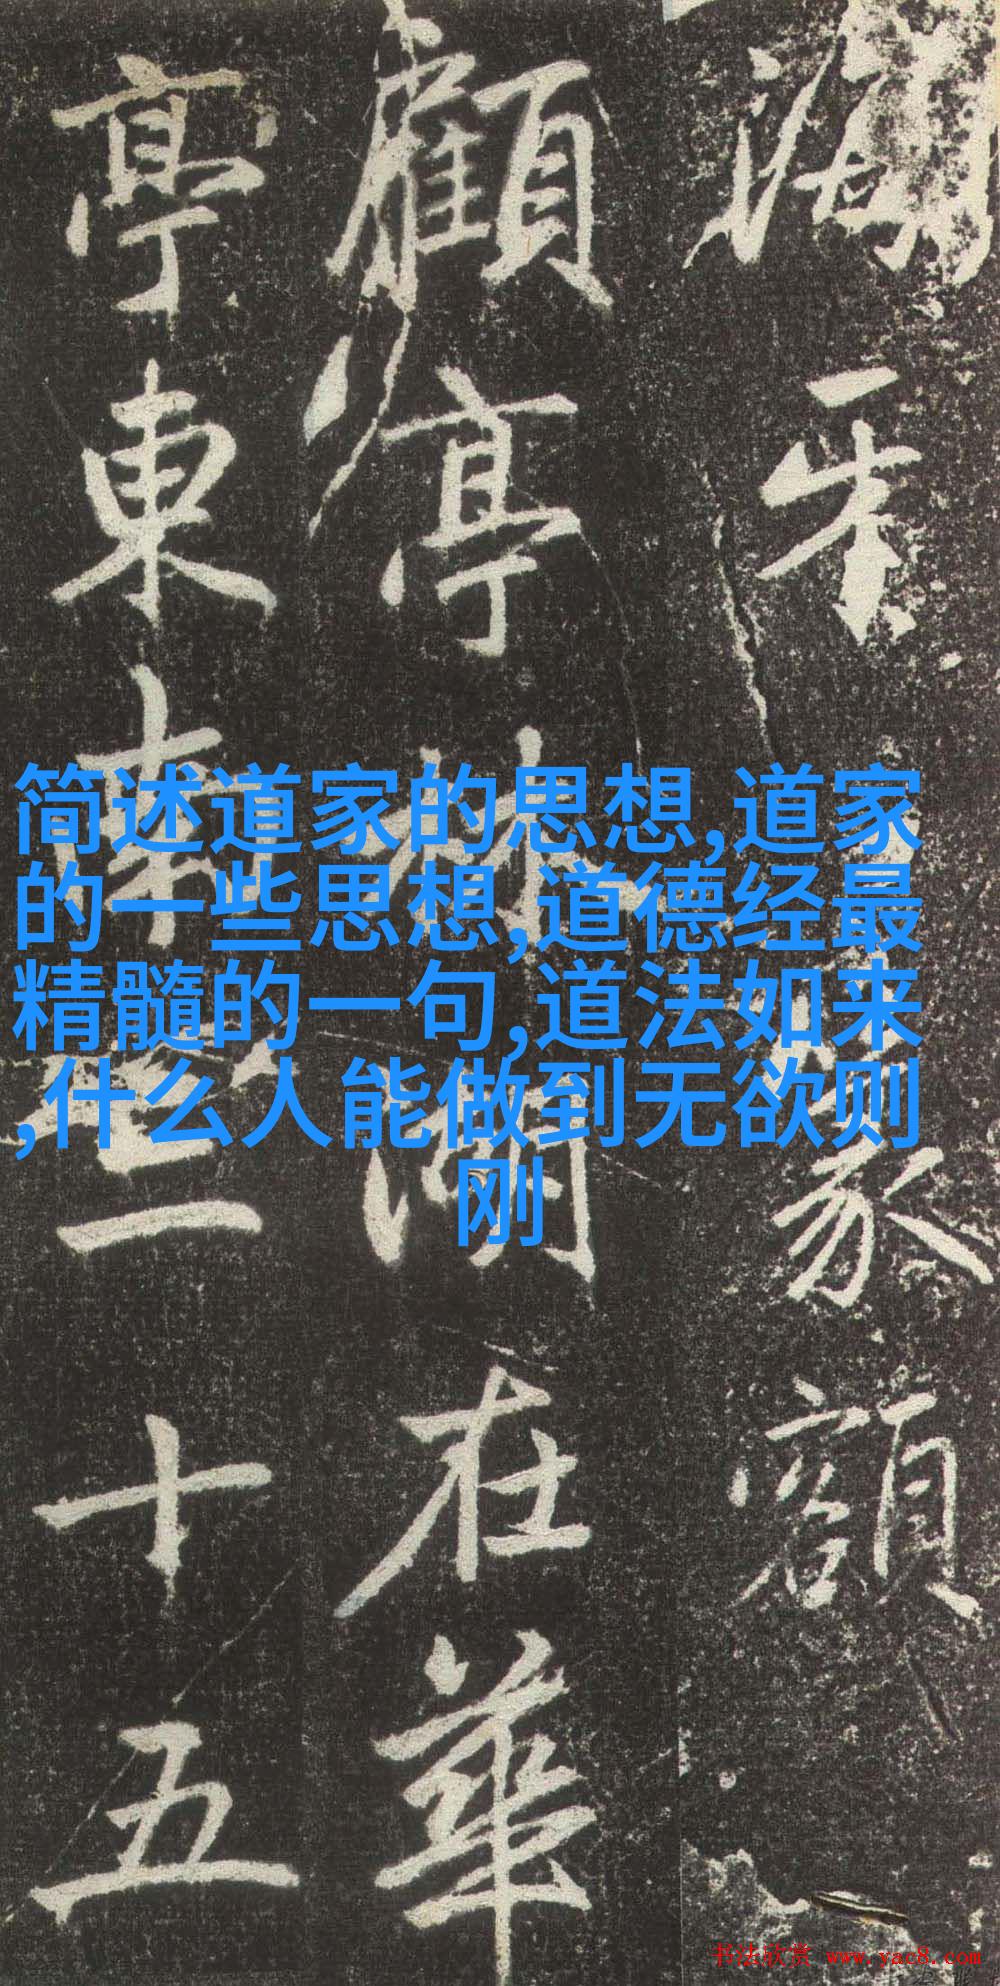 額
顧亭林湖在華
亭東南三十五
简述道家的思想,道家
的一些思想,道德经最
精髓的一句,道法如来
,什么人能做到无欲则
刚
书法欣赏 www.yac8.com